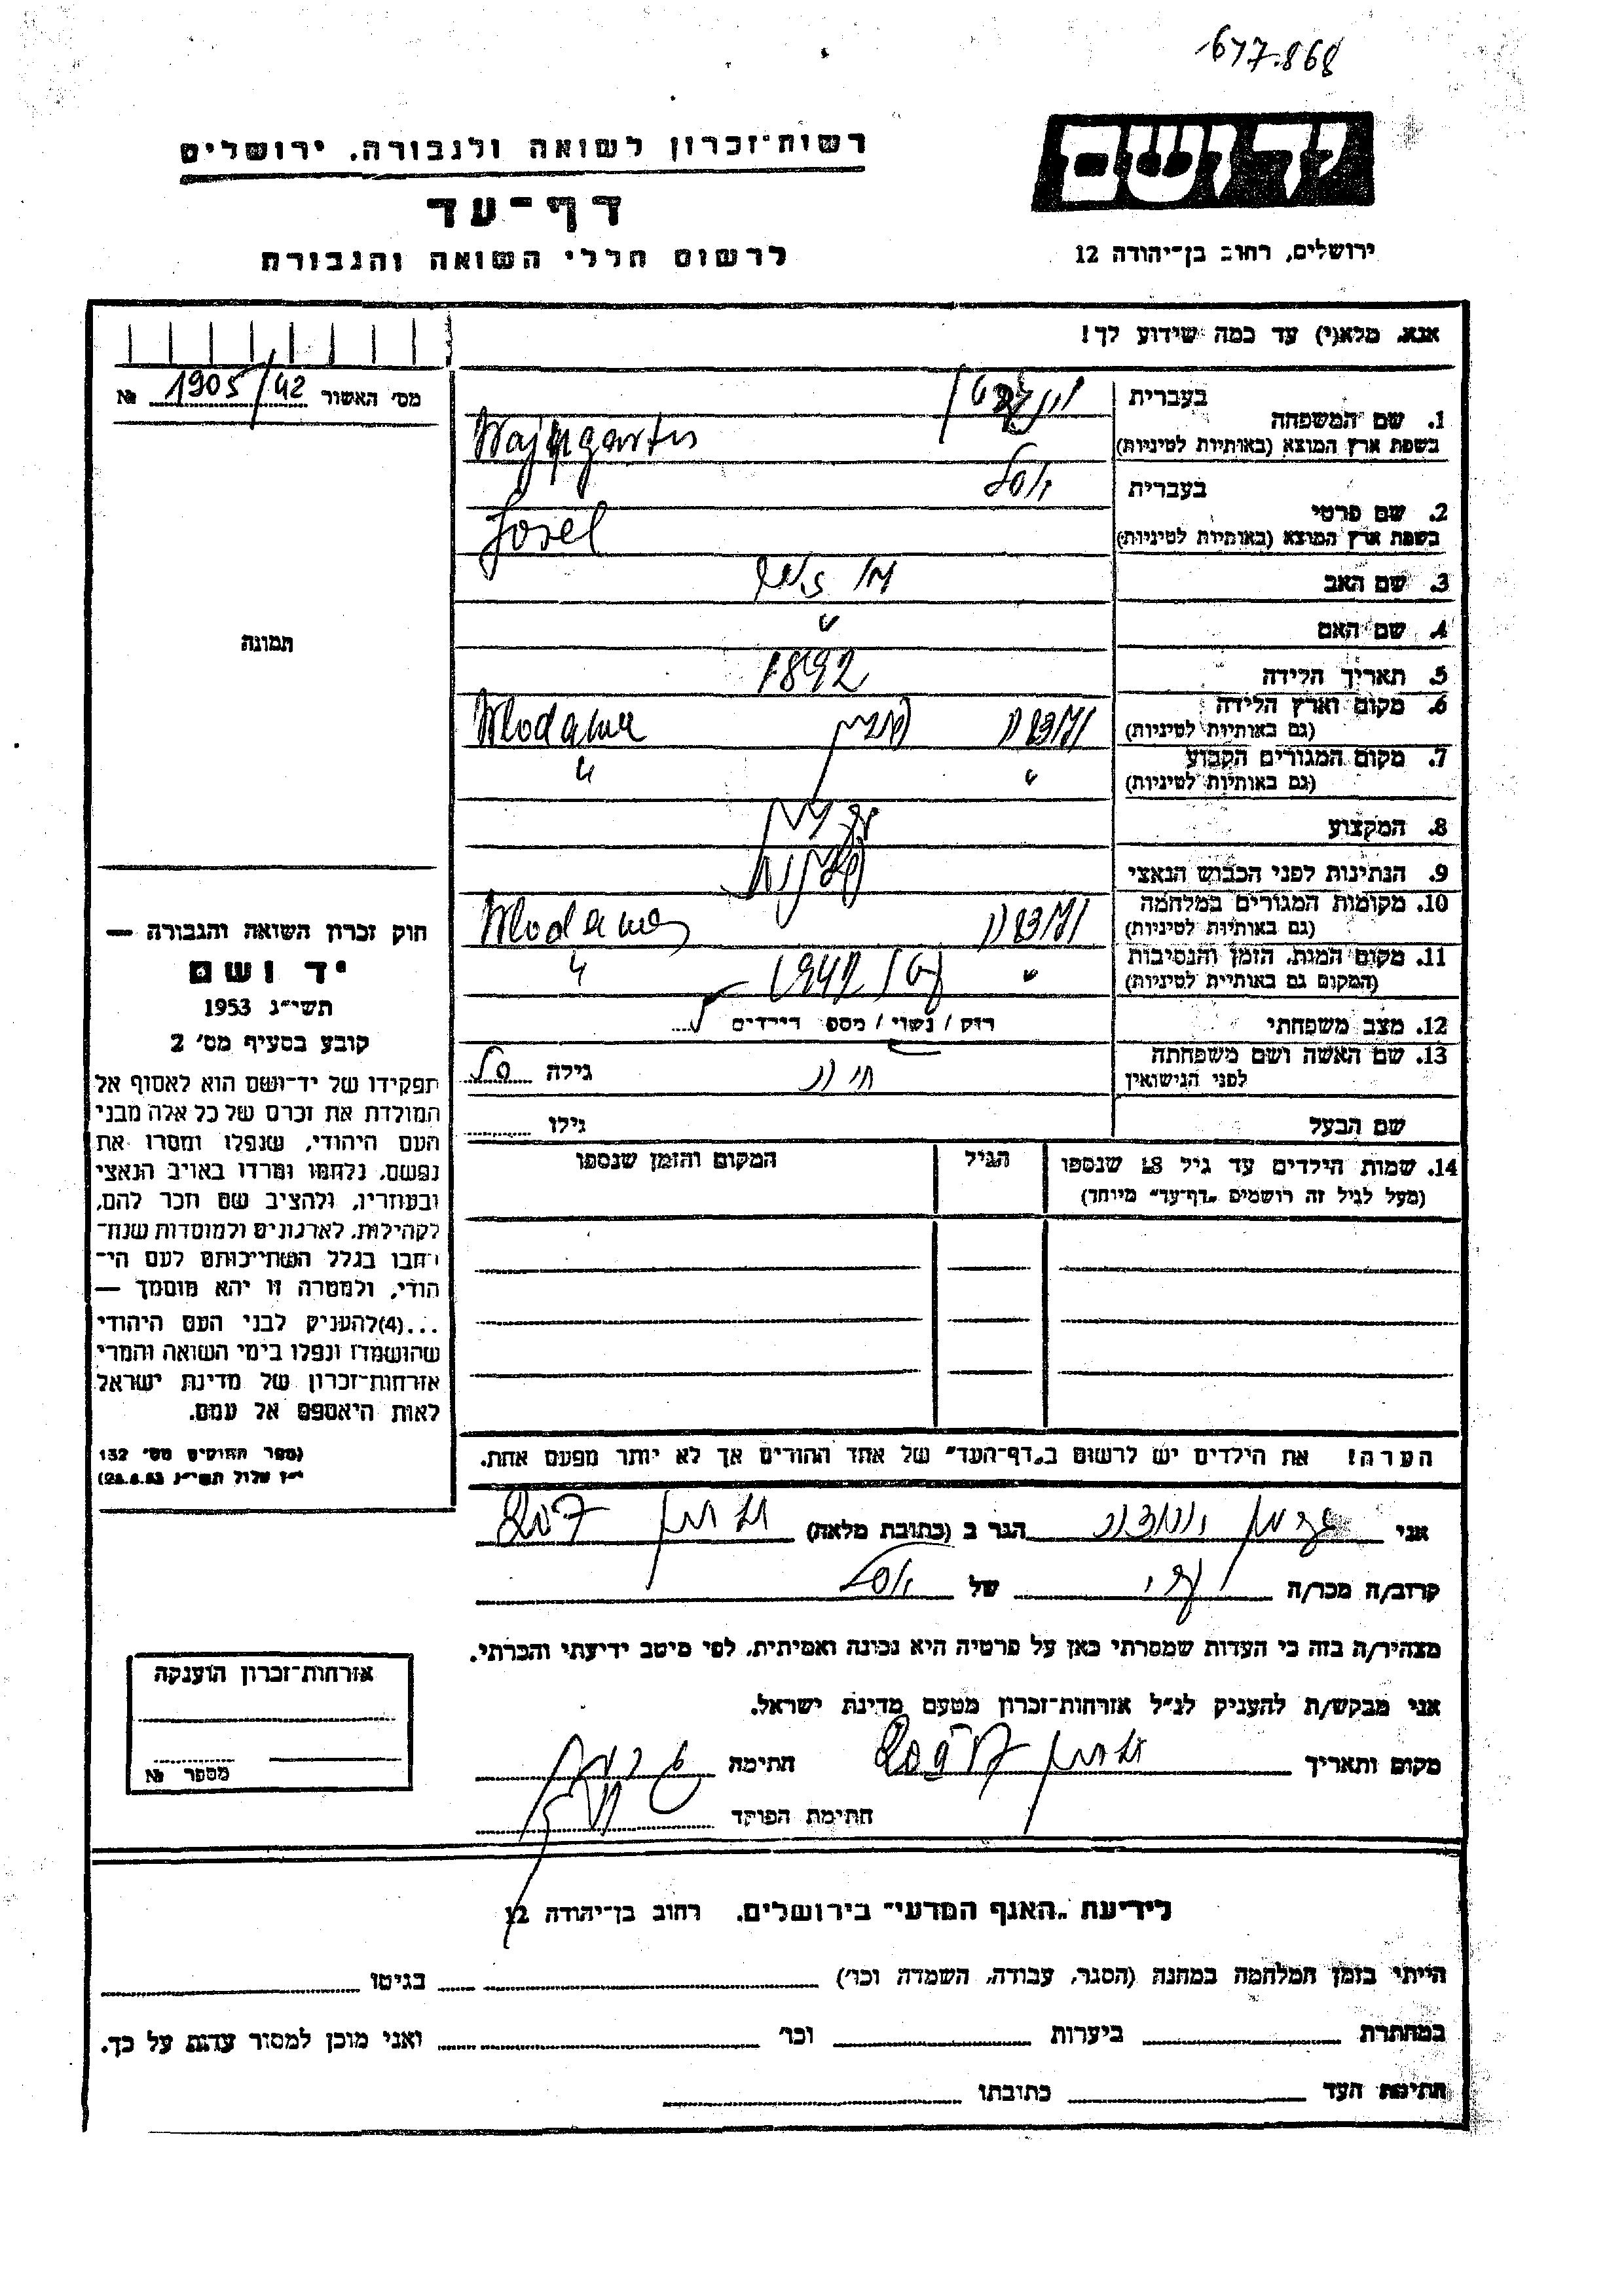 677.868
רשות־זכרון לשואה ולגבורה, ירושלים
יד ושם
דף־עד
לרשום חללי השואה והגבורה
ירושלים, רחוב בן־יהודה 12
אנא, מלא(י) עד כמה שידוע לך!
מס׳ האשור 1905/42 №
1. שם המשפחה
בעברית
בשפת ארץ המוצא (באותיות לטיניות) Wajngarten
2. שם פרטי
בעברית יוסל
בשפת ארץ המוצא (באותיות לטיניות) Josel
3. שם האב
4. שם האם "
5. תאריך הלידה 1892
6. מקום וארץ הלידה (גם באותיות לטיניות) ולודבה פולין Wlodawa
7. מקום המגורים הקבוע (גם באותיות לטיניות) " "
8. המקצוע
9. הנתינות לפני הכבוש הנאצי פולנית
10. מקומות המגורים במלחמה (גם באותיות לטיניות) ולודבה Wlodawa
11. מקום המות, הזמן והנסיבות (המקום גם באותיות לטיניות) " 1942 "
12. מצב משפחתי רוק / נשוי / מספר הילדים
13. שם האשה ושם משפחתה לפני הנישואין חיה גילה
שם הבעל גילו
14. שמות הילדים עד גיל 18 שנספו
(מעל לגיל זה רושמים „דף־עד״ מיוחד)
הגיל
המקום והזמן שנספו
הערה! את הילדים יש לרשום ב„דף־העד״ של אחד ההורים אך לא יותר מפעם אחת.
תמונה
חוק זכרון השואה והגבורה —
יד ושם
תשי״ג 1953
קובע בסעיף מס׳ 2
תפקידו של יד־ושם הוא לאסוף אל
המולדת את זכרם של כל אלה מבני
העם היהודי, שנפלו ומסרו את
נפשם, נלחמו ומרדו באויב הנאצי
ובעוזריו, ולהציב שם וזכר להם,
לקהילות, לארגונים ולמוסדות שנח־
רבו בגלל השתייכותם לעם הי־
הודי, ולמטרה זו יהא מוסמך —
...(4) להעניק לבני העם היהודי
שהושמדו ונפלו בימי השואה והמרי
אזרחות־זכרון של מדינת ישראל
לאות היאספם אל עמם.
(ספר החוקים מס׳ 132
י״ז אלול תשי״ג 28.8.53)
אני הגר ב (כתובת מלאה)
קרוב/ה מכר/ה של יוסל
מצהיר/ה בזה כי העדות שמסרתי כאן על פרטיה היא נכונה ואמיתית, לפי מיטב ידיעתי והכרתי.
אני מבקש/ת להעניק לנ״ל אזרחות־זכרון מטעם מדינת ישראל.
מקום ותאריך חתימה
חתימת הפוקד
אזרחות־זכרון הוענקה
מספר №
לידיעת „האגף המדעי״ בירושלים, רחוב בן־יהודה 12
הייתי בזמן המלחמה במחנה (הסגר, עבודה, השמדה וכו׳) בגיטו
במחתרת ביערות וכו׳ ואני מוכן למסור עדות על כך.
חתימת העד כתובתו